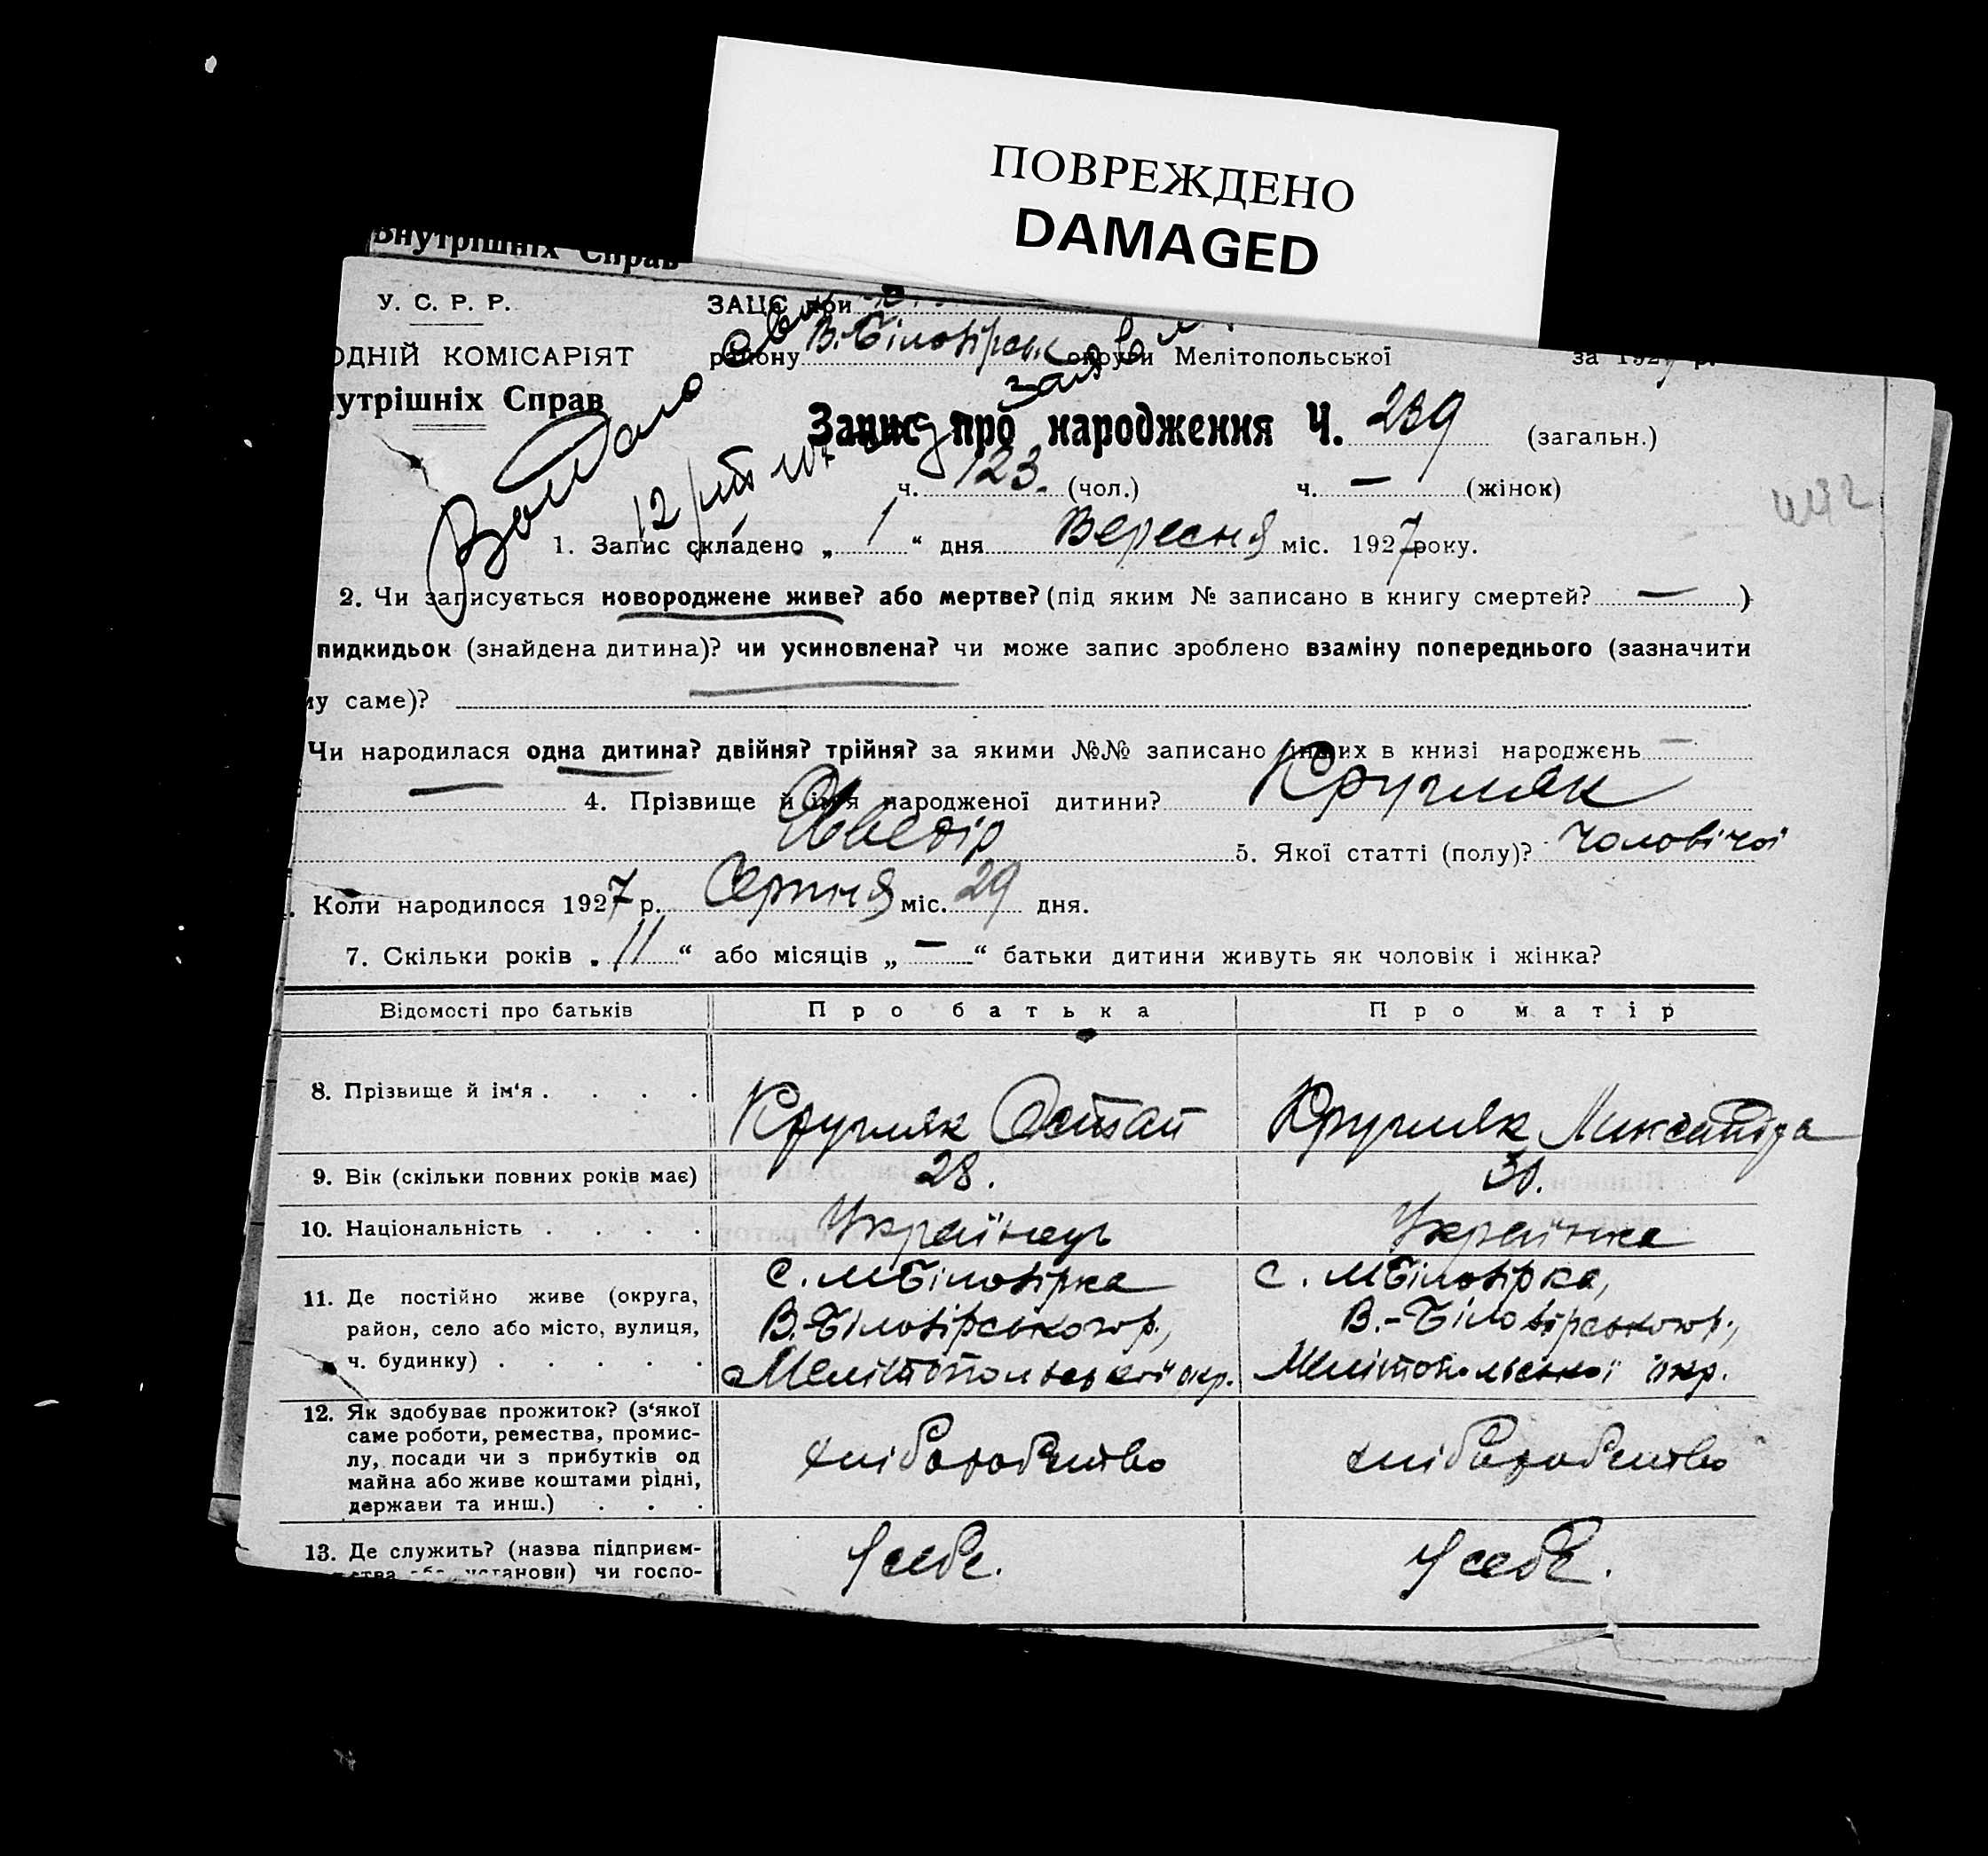 ПОВРЕЖДЕНО
DAMAGED
Внутрішніх Справ
У. С. Р. Р.
ЗАЦС при
ОДНІЙ КОМІСАРІЯТ
району В.-Білозірськ округи Мелітопольської за 1927 р.
утрішніх Справ
Запис про народження Ч. 239 (загальн.)
ч. 123. (чол.) ч. — (жінок)
1. Запис складено „ 1 “ дня Вересня міс. 1927 року.
2. Чи записується новороджене живе? або мертве? (під яким № записано в книгу смертей? — )
пидкидьок (знайдена дитина)? чи усиновлена? чи може запис зроблено взаміну попереднього (зазначити
му саме)?
Чи народилася одна дитина? двійня? трійня? за якими №№ записано инших в книзі народжень —
— 4. Прізвище й ім'я народженої дитини? Кругляк
5. Якої статті (полу)? Чоловічої
Коли народилося 1927 р. Серпня міс. 29 дня.
7. Скільки років „ 11 “ або місяців „ — “ батьки дитини живуть як чоловік і жінка?
Відомості про батьків Про батька Про матір
8. Прізвище й ім'я . . . . Кругляк Остап Кругляк Ликсандра
9. Вік (скільки повних років має) 28. 30.
10. Національність . . . . Українець Українка
11. Де постійно живе (округа,
район, село або місто, вулиця,
ч. будинку) . . . . .
с. МБілозірка
В.-Білозірського р.,
Мелітопольської окр.
с. МБілозірка,
В.-Білозірського р.,
Мелітопольської окр.
12. Як здобуває прожиток? (з'якої
саме роботи, ремества, промис-
лу, посади чи з прибутків од
майна або живе коштами рідні,
держави та инш.) . . .
хліборобство
хліборобство
13. Де служить? (назва підприєм-
ства або установи) чи госпо-
У себе.
У себе.